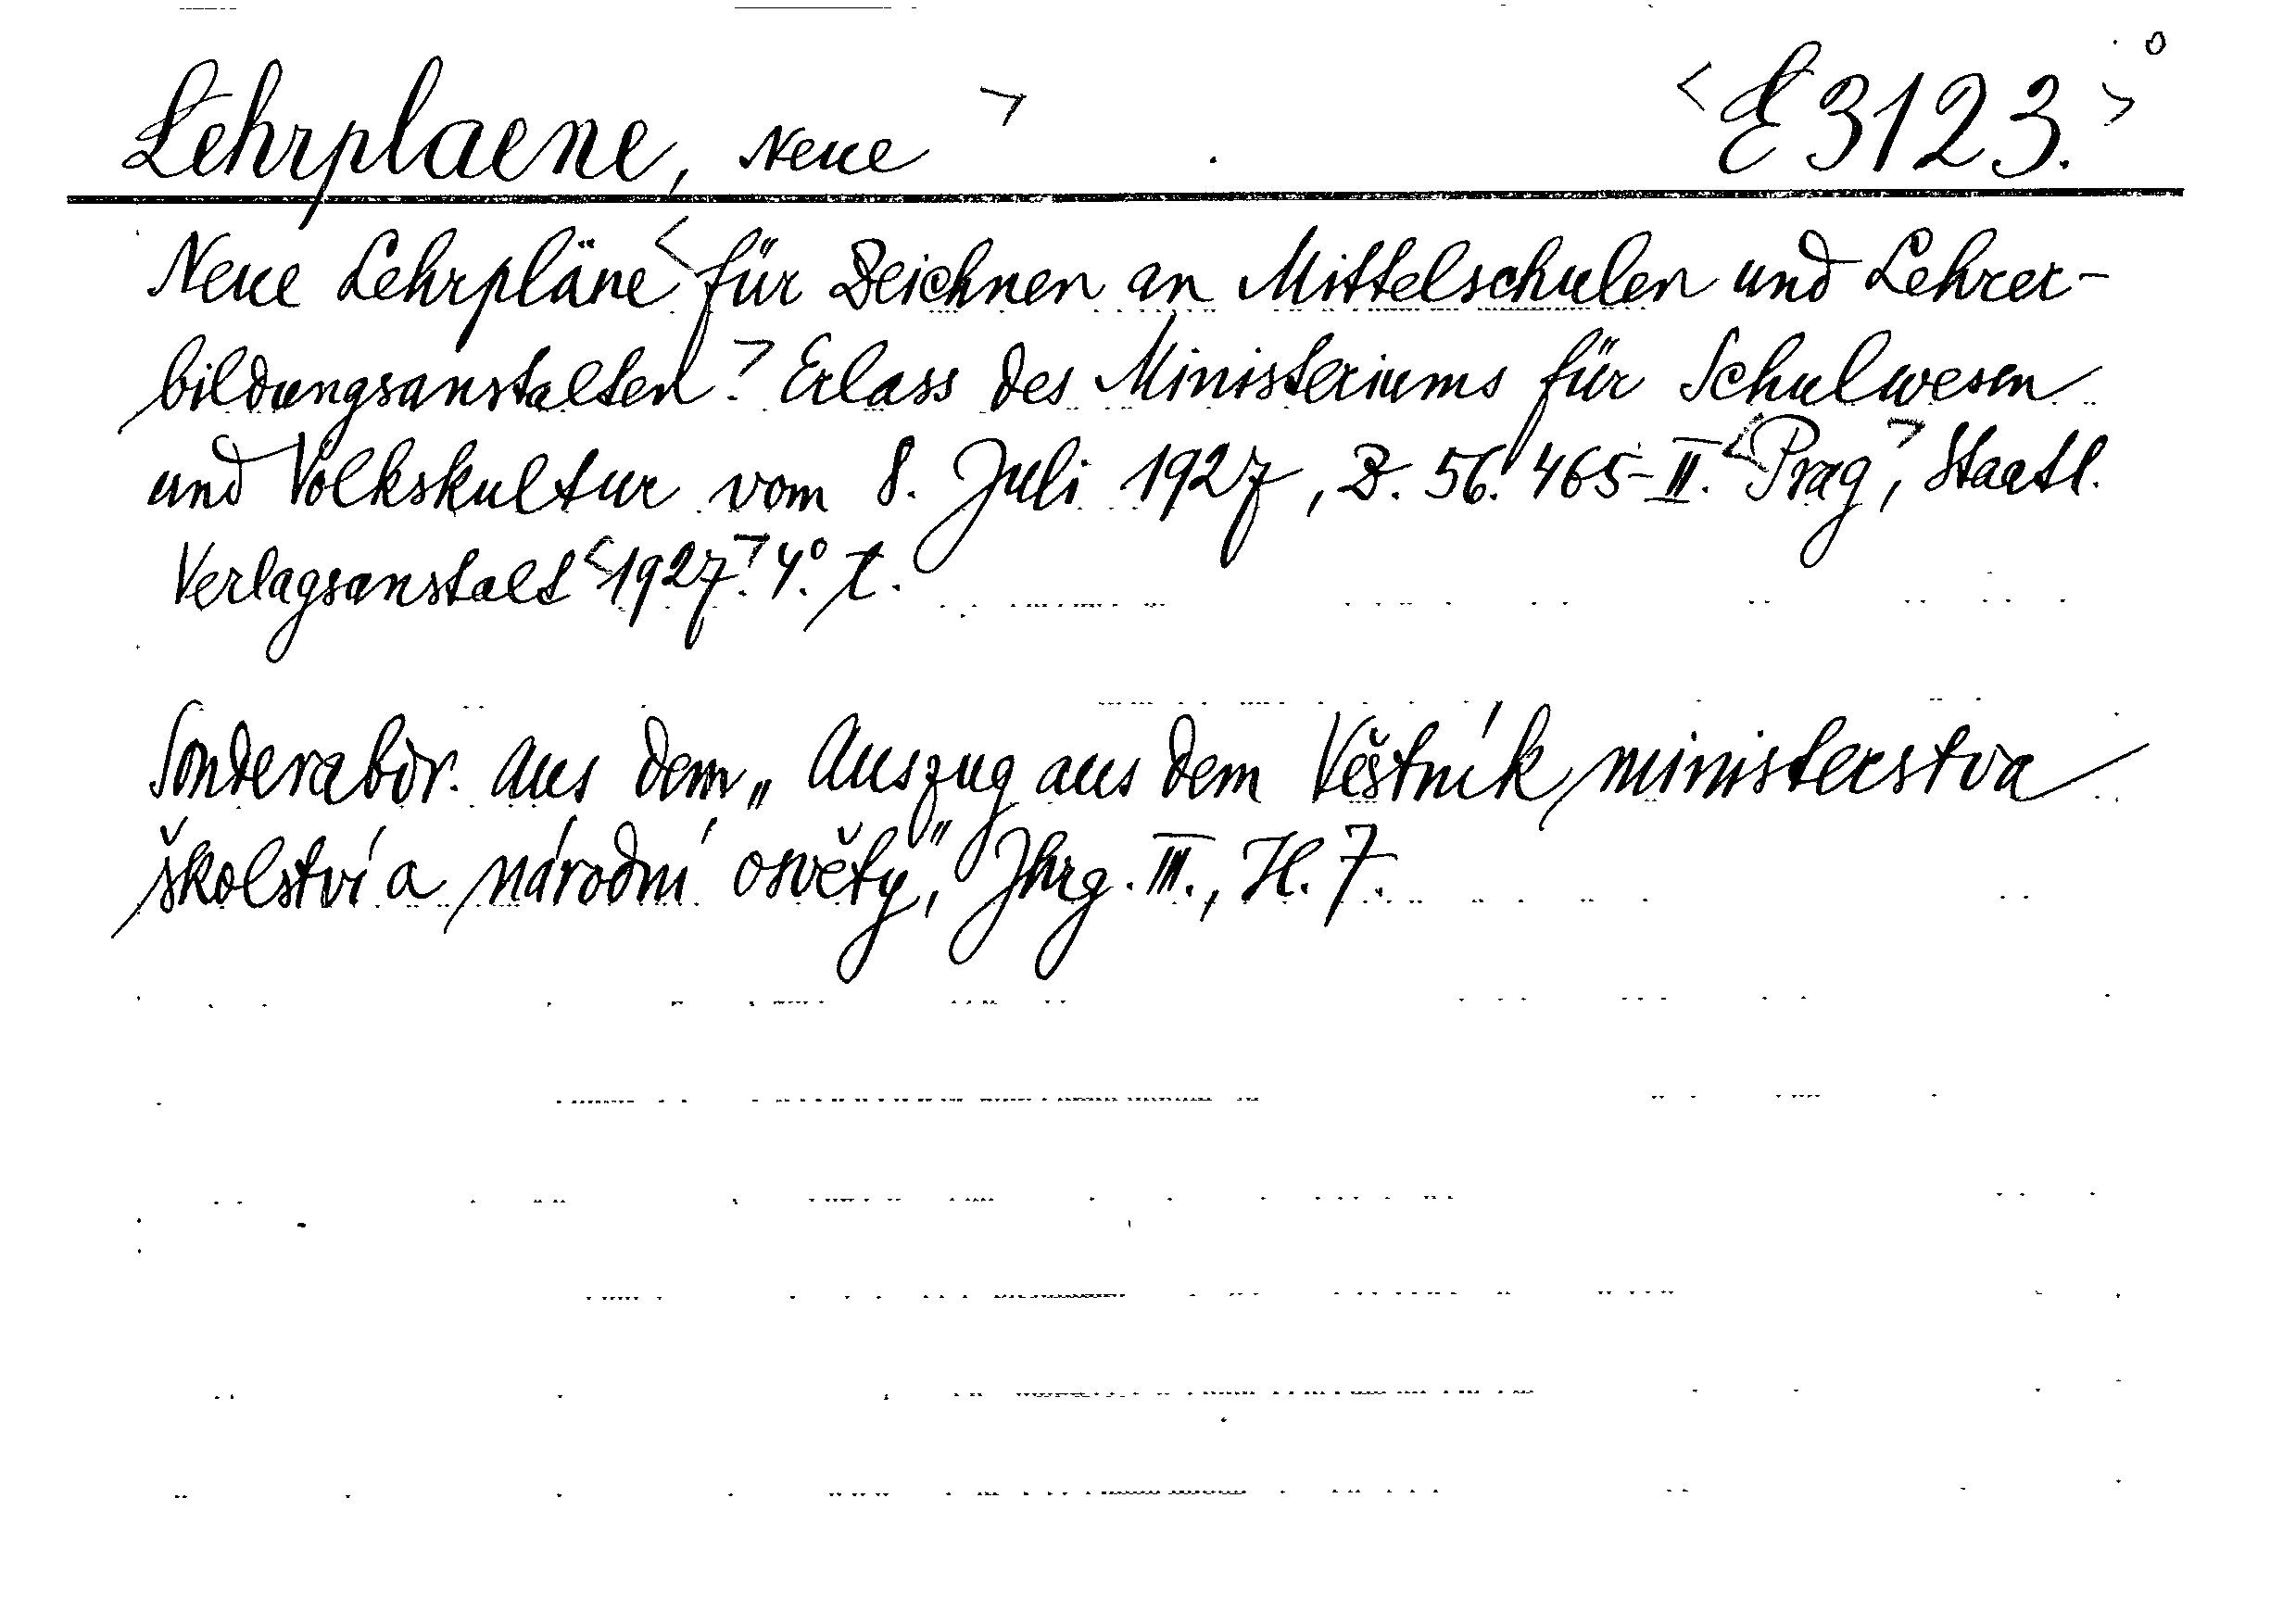 Lehrplaene, Neue > <E 3123.>
Neue Lehrpläne < für Zeichnen an Mittelschulen und Lehrer-
bildungsanstalten.> Erlass des Ministeriums für Schulwesen
und Volkskultur vom 8. Juli 1927, Z. 56.465-II. <Prag>, Staatl.
Verlagsanstalt <1927.> 4°. t.
Sonderabdr. aus dem „Auszug aus dem Věstník ministerstva
školství a národní osvěty", Jhrg. III., H. 7.